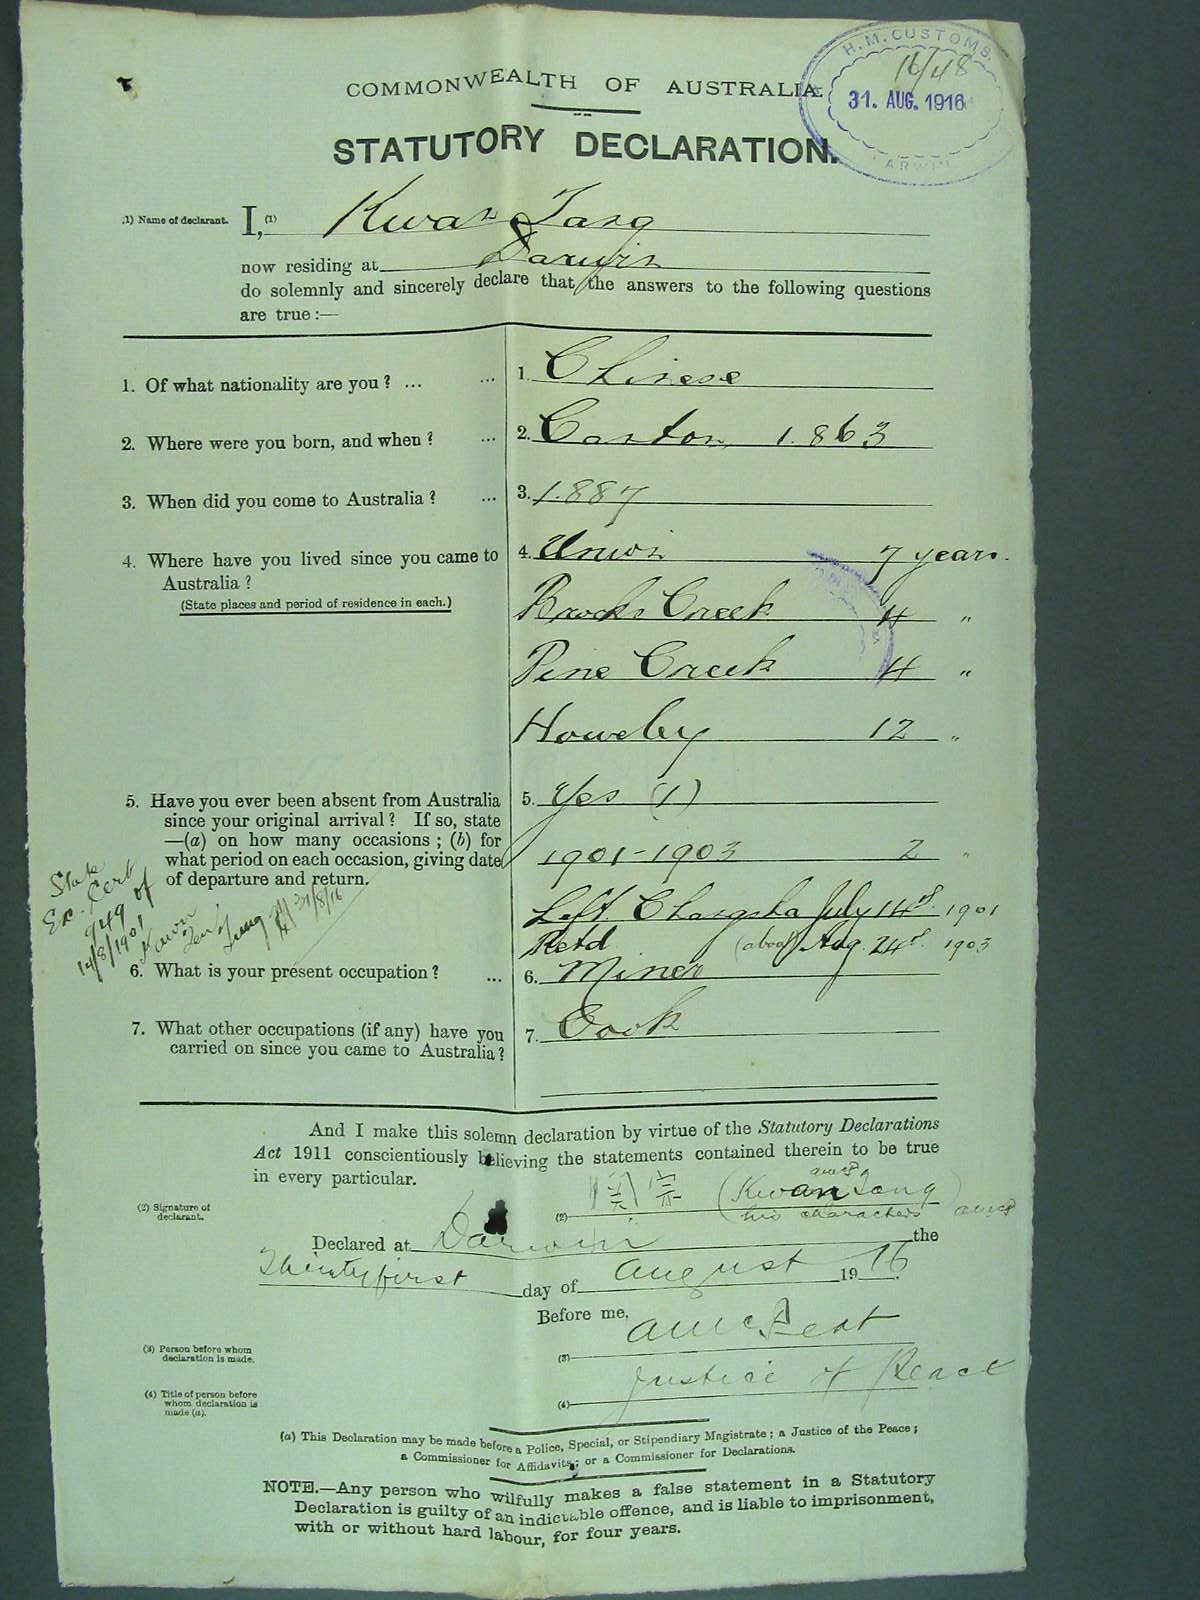 H.M. CUSTOMS.
16/48
31. AUG. 1916
DARWIN
COMMONWEALTH OF AUSTRALIA.
STATUTORY DECLARATION.
(1) Name of declarant. I, (1) Kwan Tang
now residing at Darwin
do solemnly and sincerely declare that the answers to the following questions
are true:—
1. Of what nationality are you? ... ... 1. Chinese
2. Where were you born, and when? ... 2. Canton, 1863
3. When did you come to Australia? ... 3. 1887
4. Where have you lived since you came to 4. Union 7 years.
Australia?
(State places and period of residence in each.)
Brocks Creek 4 "
Pine Creek 4 "
Howley 12 "
5. Have you ever been absent from Australia 5. Yes (1)
since your original arrival? If so, state
—(a) on how many occasions; (b) for
what period on each occasion, giving date 1901-1903 2 "
of departure and return.
State
Ex. Cert
749 of
14/8/1901
31/8/16
Left Changsha July 14th 1901
Retd (about) Aug. 24th 1903
6. What is your present occupation? ... 6. Miner
7. What other occupations (if any) have you 7. Cook
carried on since you came to Australia?
And I make this solemn declaration by virtue of the Statutory Declarations
Act 1911 conscientiously believing the statements contained therein to be true
in every particular.
(2) Signature of
declarant.
(2) (Kwan Tang)
his characters
Declared at Darwin the
Thirty first day of August 1916.
Before me,
(3) Person before whom
declaration is made.
(3)
Justice of Peace
(4) Title of person before
whom declaration is
made (a).
(4)
(a) This Declaration may be made before a Police, Special, or Stipendiary Magistrate; a Justice of the Peace;
a Commissioner for Affidavits; or a Commissioner for Declarations.
NOTE.—Any person who wilfully makes a false statement in a Statutory
Declaration is guilty of an indictable offence, and is liable to imprisonment,
with or without hard labour, for four years.